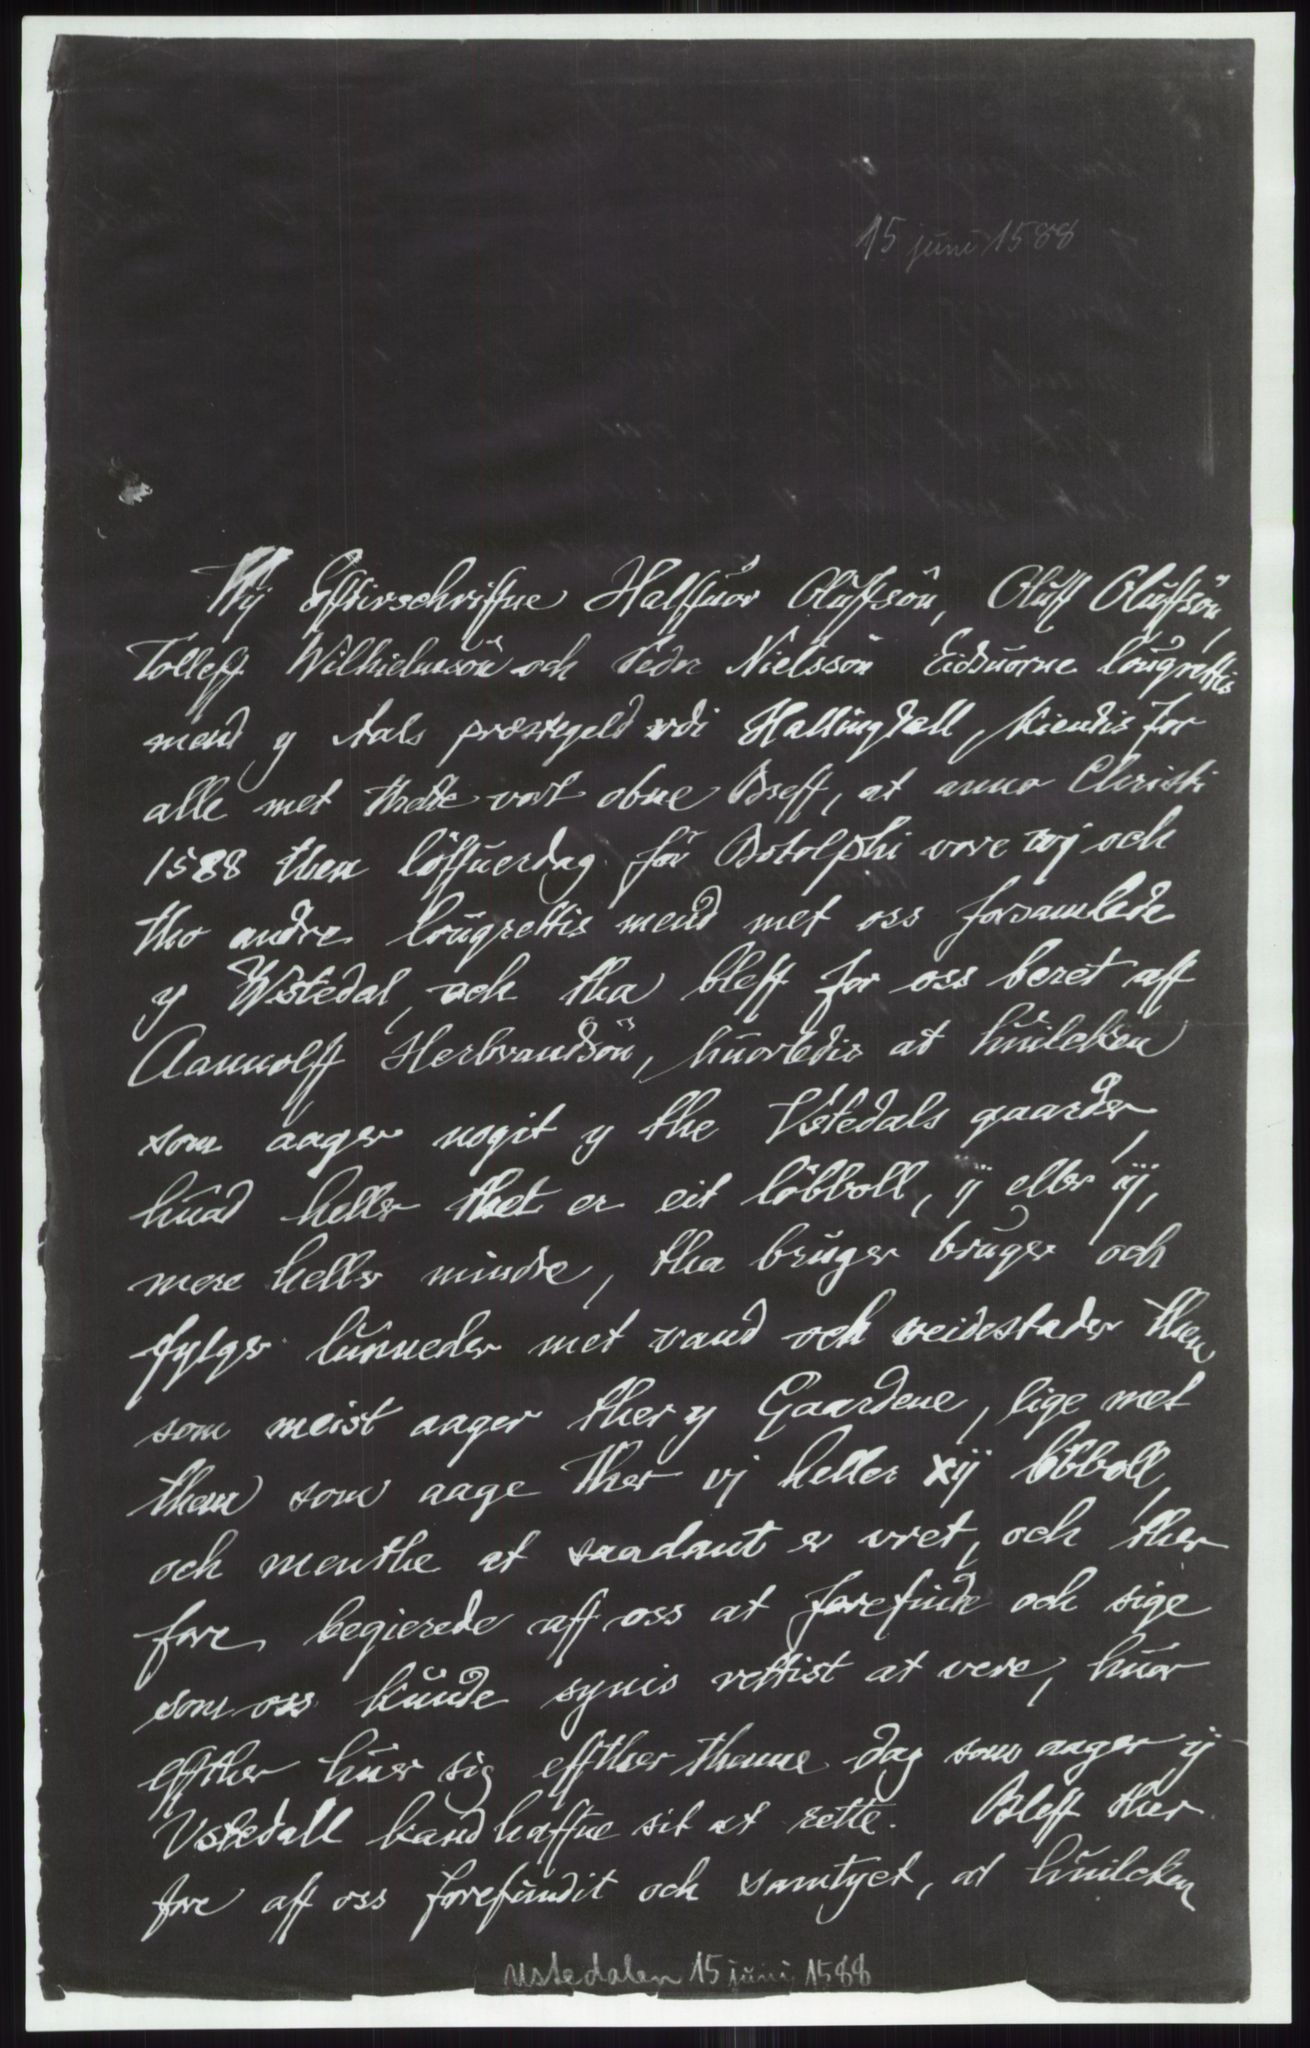 15 juni 1588
Wÿ Effterschriffne Halffuor Oluffsön, Oluff Oluffsön,
Tolleff Wilhielmsön och Peder Nielssön Eidsuorne lougrettis
mend y Aals prestegeld vdi Hallingdall, kiendis for
alle met thette vort obne Breff, at anno Christi
1588 then löffuerdag for Botolphi vore wj och
tho andre lougrettis mend met oss forsamlede
y Wstedal, och tha bleff for oss beret aff
Aamnolff Herbrandsön, huorledis at huilcken
som aager nogit y the Vstedals gaarder,
huad heller thet er eit löbboll, ij eller iij,
mere heller mindre, tha bruger bruger och
fylger lunneder met vand och veidestader them
som meist aager ther y Gaardene, lige met
them som aage ther vj heller xij löbboll,
och menthe at saadant er vret, och ther
fore begierede aff oss at forefinde och sige
som oss kunde synis rettist at vere, huor
effther huer sig effther thenne dag som aager ij
Vstedall kand haffue sit at rette. Bleff ther
fore aff oss forefundit och samtyct, at huilcken
Ustedalen 15 juni 1588